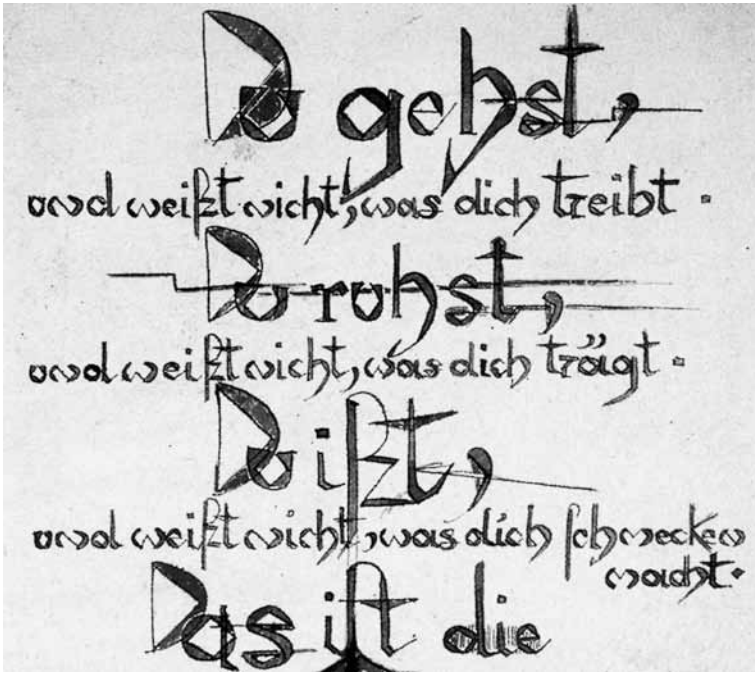 Du gehst,
und weißt nicht, was dich treibt.
Du ruhst,
und weißt nicht, was dich trägt.
Du ißt,
und weißt nicht, was dich schmecken
macht.
Das ist die